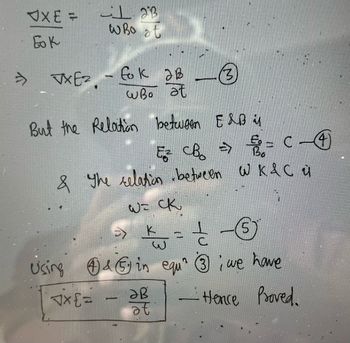 ∇×E = -1/ωB₀ ∂B/∂t
E₀K
⇒ ∇×E = - E₀K/ωB₀ ∂B/∂t —③
But the Relation between E & B is
E₀ = CB₀ ⇒ E₀/B₀ = C —④
& The relation between W K & C is
ω = CK.
⇒ K/ω = 1/C —⑤
Using ④ & ⑤ in equⁿ ③ ; we have
∇×E = - ∂B/∂t — Hence Proved.